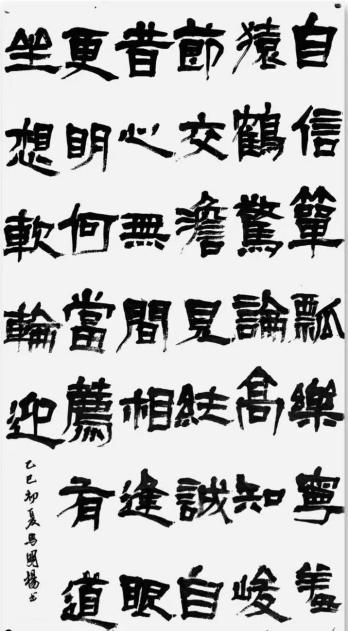 自信簞瓢樂寧羞
猿鶴驚論高知峻
節交澹見純誠自
昔心無間相逢眼
更明何當薦有道
坐想軟輪迎
乙巳初夏馬